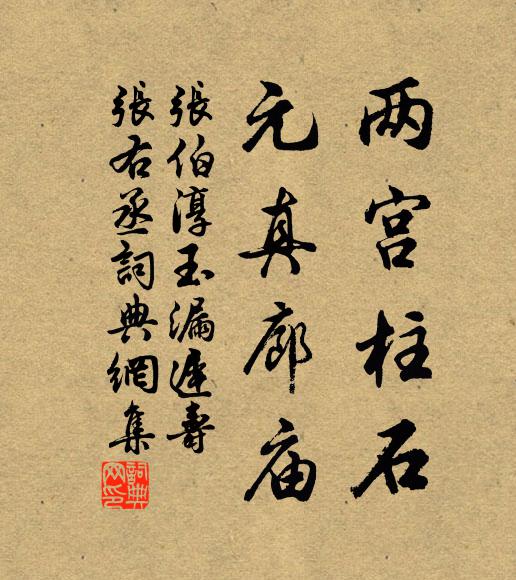 两宫柱石
元真廊庙
張伯淳玉漏遲壽
張右丞詞典網集
詞典网印